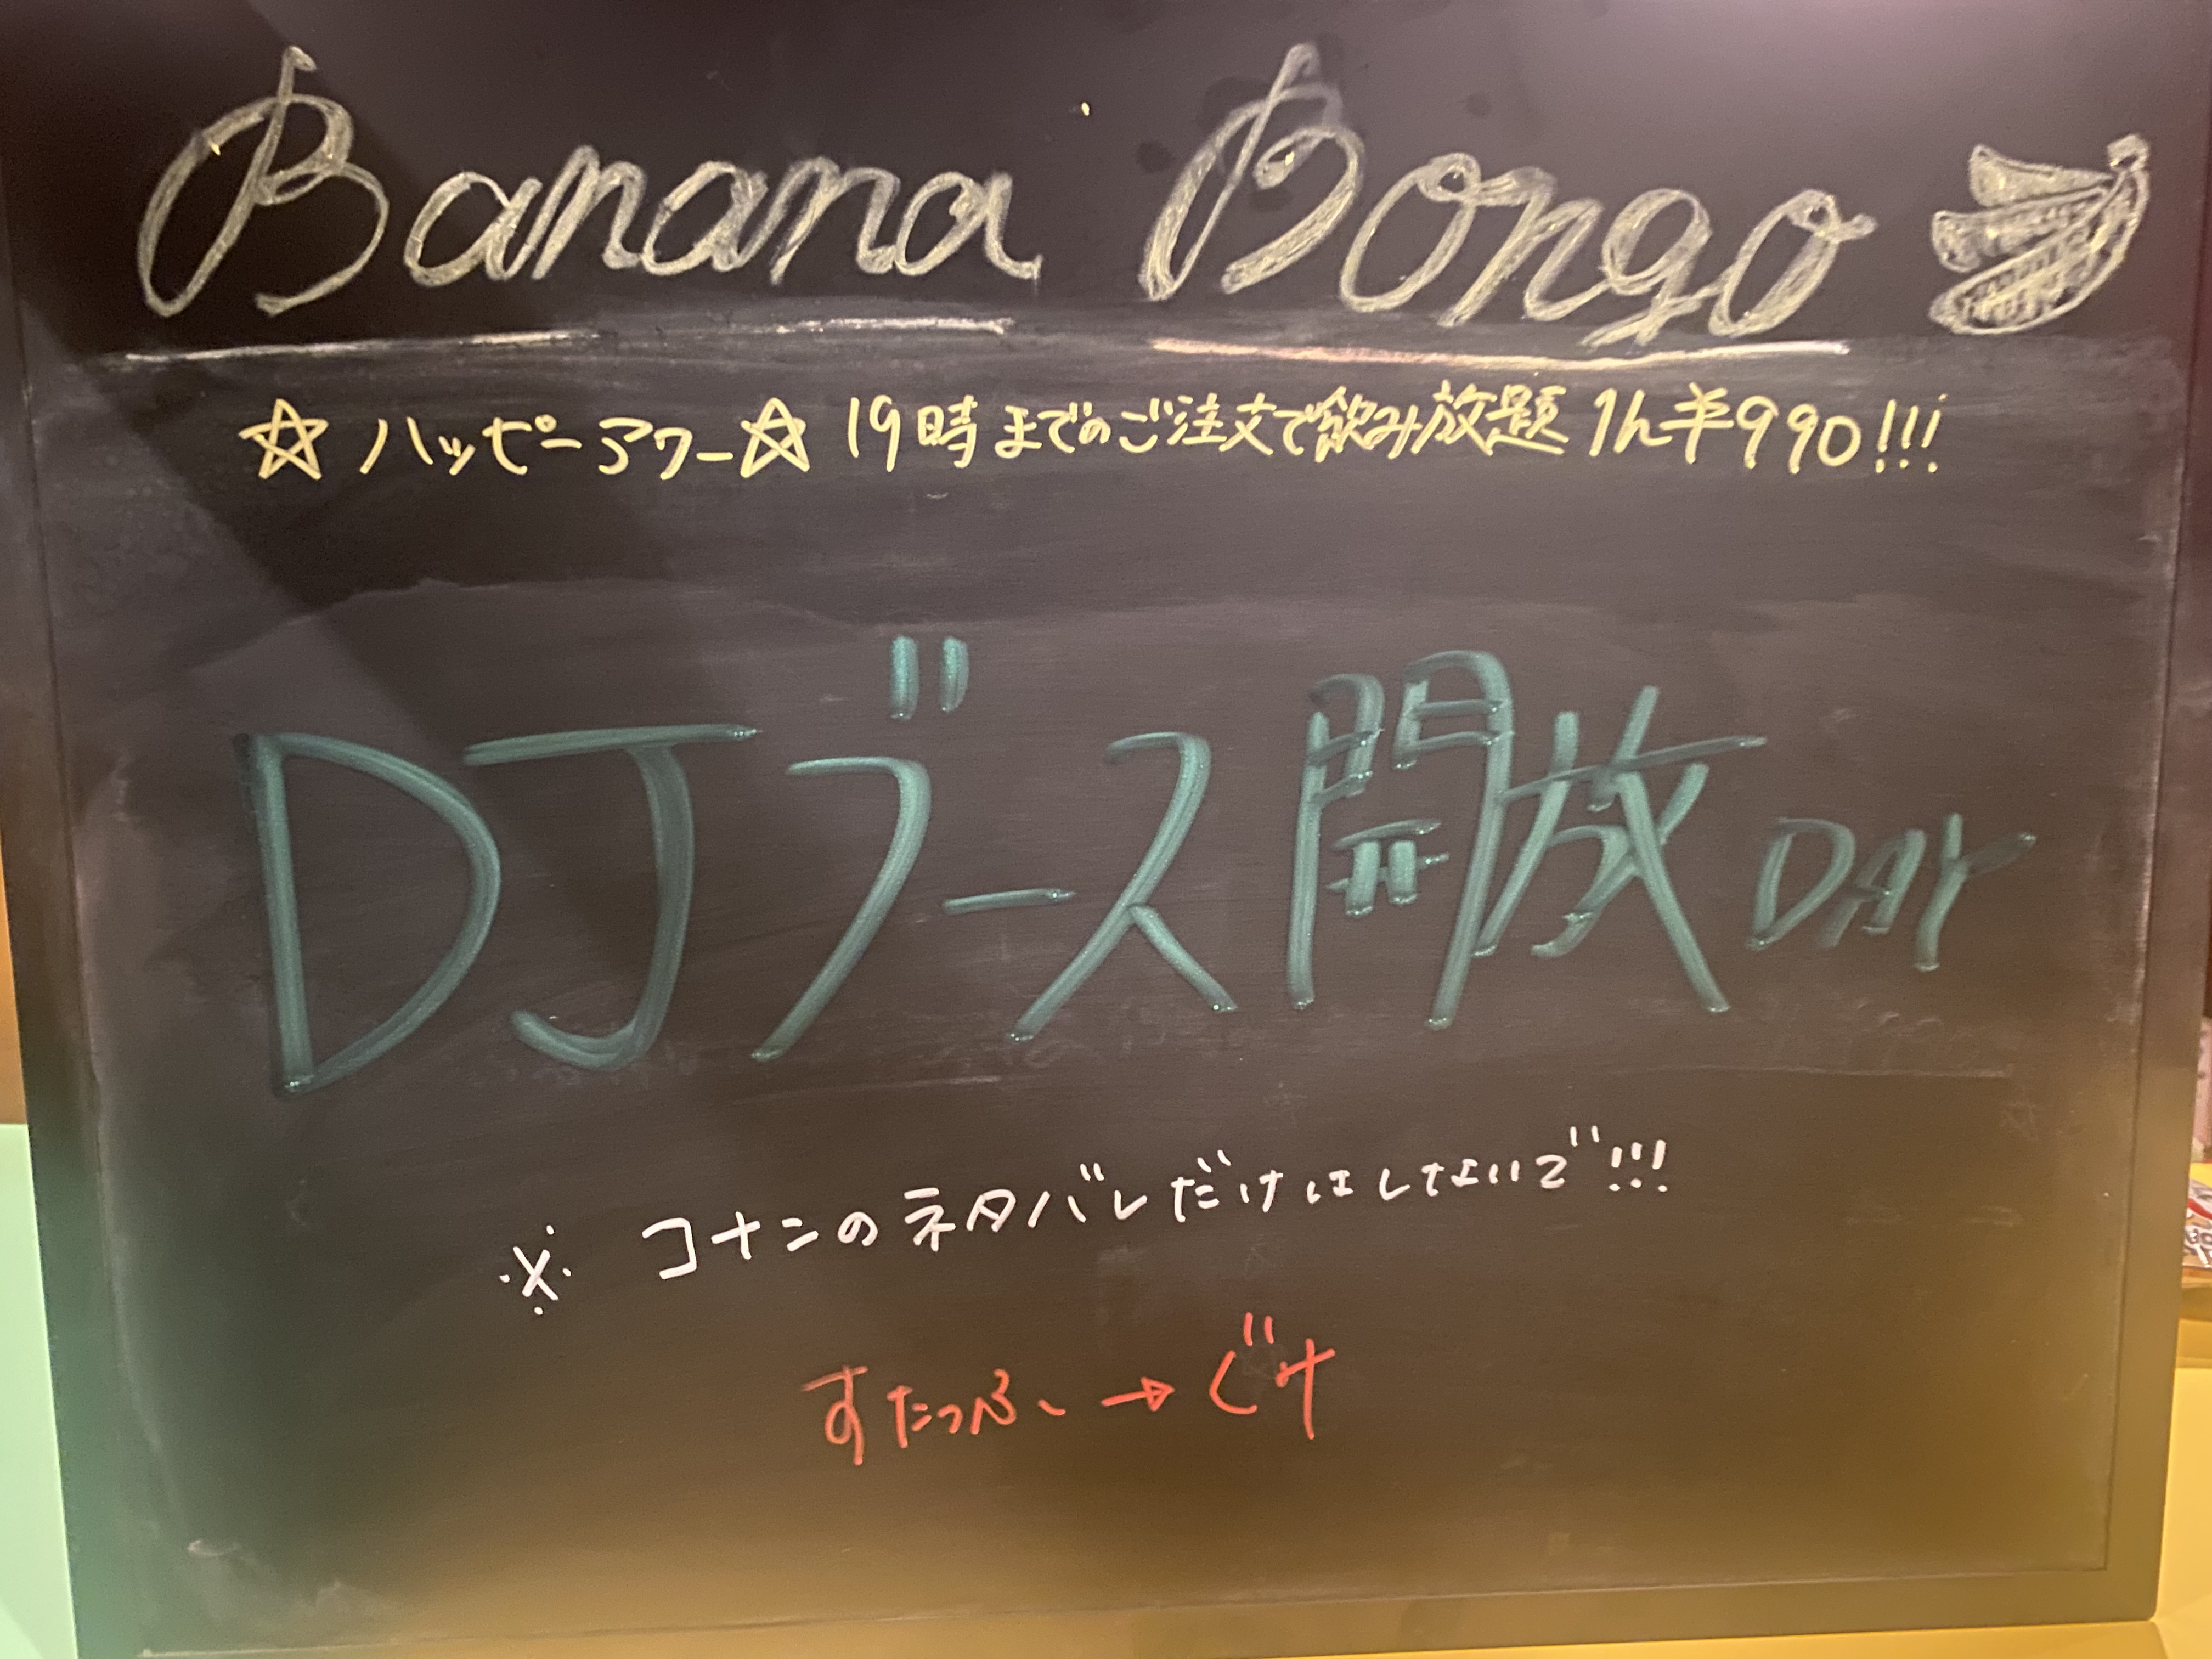 Banana Bongo
☆ハッピーアワー☆ 19時までのご注文で飲み放題 1h半990!!!
DJブース開放DAY
※ コナンのネタバレだけはしないで!!!
すたっふ、→ぐみ